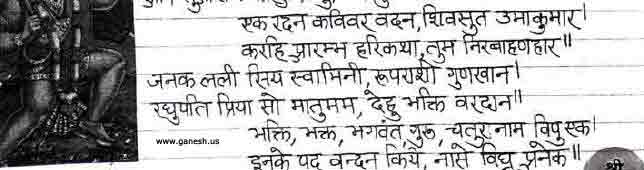 एक रदन कविवर वदन, शिवसुत उमाकुमार।
करहि प्रारम्भ हरिकथा, तुम निरवाहणहार॥
जनक लली सिय स्वामिनी, रूपराशी गुणखान।
रघुपति प्रिया सो मातुमम, देहु भक्ति वरदान॥
भक्ति, भक्त, भगवंत, गुरू, चतुर नाम विपु एक।
www.ganesh.us
इनके पद वन्दन किये, नासे विघ्न अनेक॥
श्री